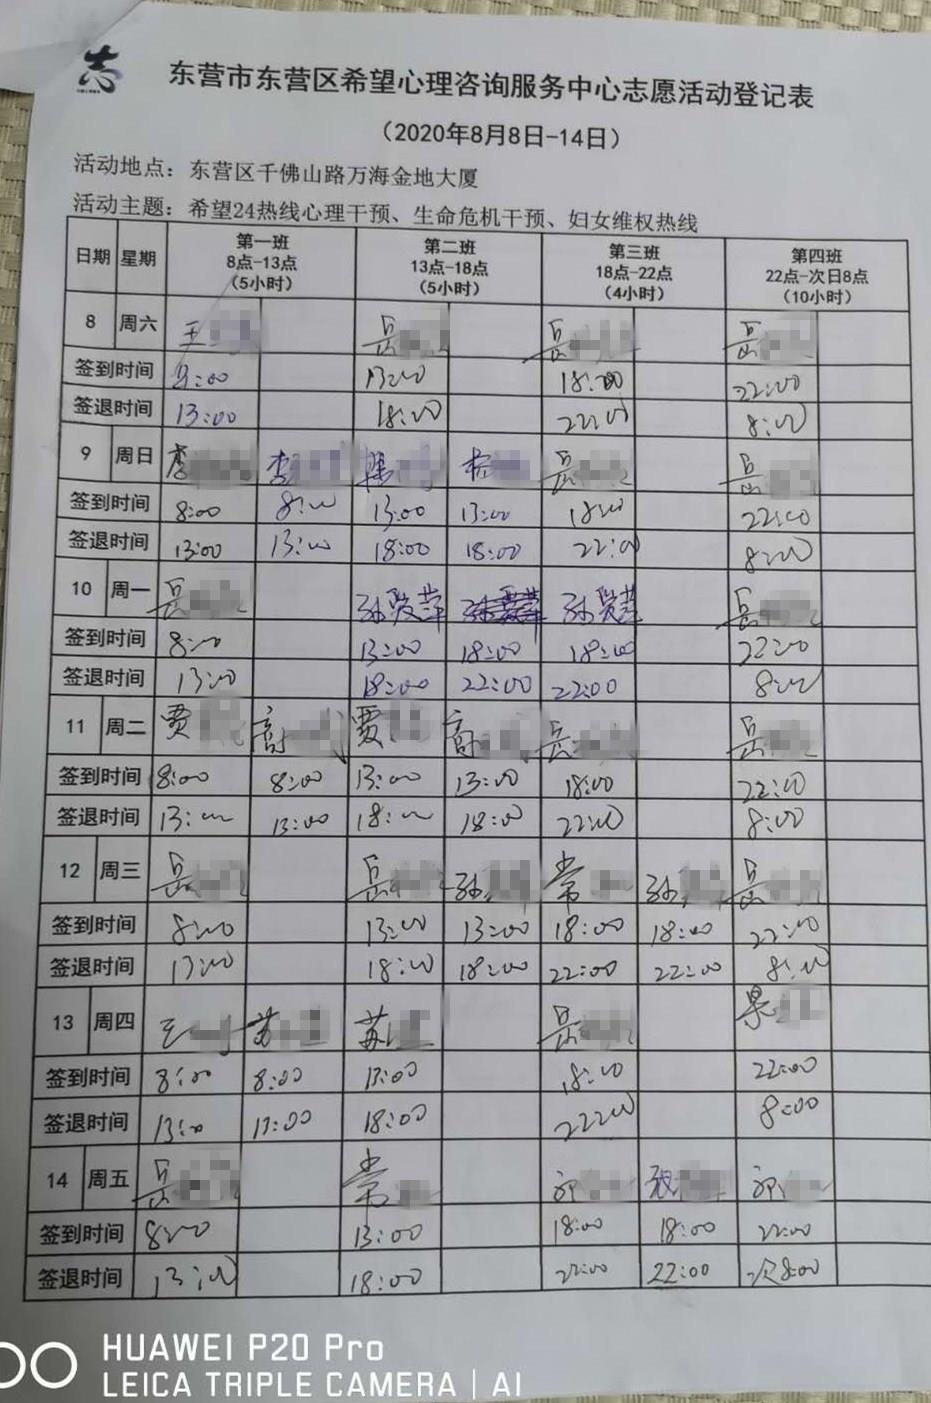 志
东营市东营区希望心理咨询服务中心志愿活动登记表
（2020年8月8日-14日）
活动地点：东营区千佛山路万海金地大厦
活动主题：希望24热线心理干预、生命危机干预、妇女维权热线
日期 星期 第一班 8点-13点 （5小时） 第二班 13点-18点 （5小时） 第三班 18点-22点 （4小时） 第四班 22点-次日8点 （10小时）
8 周六 王 岳 岳 岳
签到时间 8:00 13:00 18:00 22:00
签退时间 13:00 18:00 22:00 8:00
9 周日 李 李 梁 岳 岳
签到时间 8:00 8:00 13:00 13:00 18:00 22:00
签退时间 13:00 13:00 18:00 18:00 22:00 8:00
10 周一 岳 孙爱萍 孙爱萍 岳
签到时间 8:00 13:00 18:00 18:00 22:00
签退时间 13:00 18:00 22:00 22:00 8:00
11 周二 贾 高 贾 高 岳 岳
签到时间 8:00 8:00 13:00 13:00 18:00 22:00
签退时间 13:00 13:00 18:00 18:00 22:00 8:00
12 周三 岳 岳 孙 常 孙 岳
签到时间 8:00 13:00 13:00 18:00 18:00 22:00
签退时间 13:00 18:00 18:00 22:00 22:00 8:00
13 周四 王 苏 苏 岳
签到时间 8:00 8:00 13:00 18:00 22:00
签退时间 13:00 13:00 18:00 22:00 8:00
14 周五 岳 常
签到时间 8:00 13:00 18:00 18:00 22:00
签退时间 13:00 18:00 22:00 22:00 次8:00
HUAWEI P20 Pro
LEICA TRIPLE CAMERA | AI